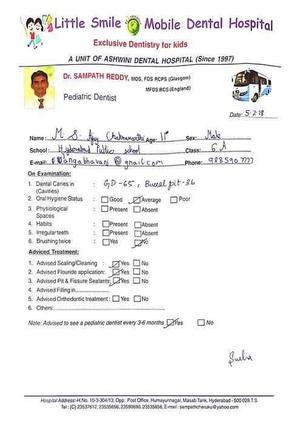 Little Smile Mobile Dental Hospital
Exclusive Dentistry for kids
A UNIT OF ASHWINI DENTAL HOSPITAL (Since 1997)
Dr. SAMPATH REDDY, MDS, FDS RCPS (Glasgow)
MFDS RCS (England)
Pediatric Dentist
Date: 5-2-18
Name: M. S. Ajay Chakravarthi Age: 11 Sex: Male
School: Hyderabad Public school Class: 6 A
E-mail: @gmail.com Phone:
On Examination:
1. Dental Caries in (Cavities) : GD-65, Buccal pit-36
2. Oral Hygiene Status : Good Average Poor
3. Physiological Spaces : Present Absent
4. Habits : Present Absent
5. Irregular teeth : Present Absent
6. Brushing twice : Yes No
Adviced Treatment:
1. Advised Scaling/Cleaning : Yes No
2. Advised Flouride application: Yes No
3. Advised Pit & Fissure Sealants: Yes No
4. Advised Filling in
5. Advised Orthodontic treatment : Yes No
6. Others:
Note: Advised to see a pediatric dentist every 3-6 months Yes No
Hospital Address: H.No. 10-3-304/13, Opp: Post Office, Humayunnagar, Masab Tank, Hyderabad - 500 028 T.S.
Tel: (C) 23537612, 23535656, 23590690, 23535656, E-mail: sampathcheruku@yahoo.com